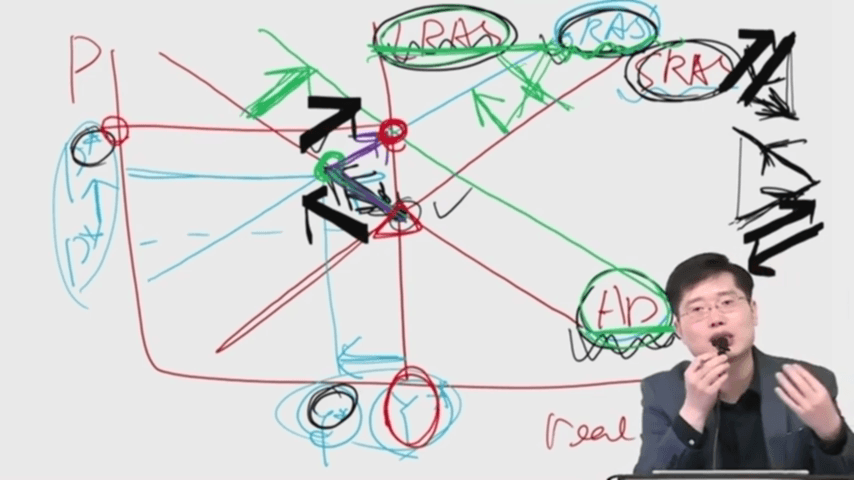 P
LRAS
SRAS
SRAS
P*
P*
AD
Y*
Y
real